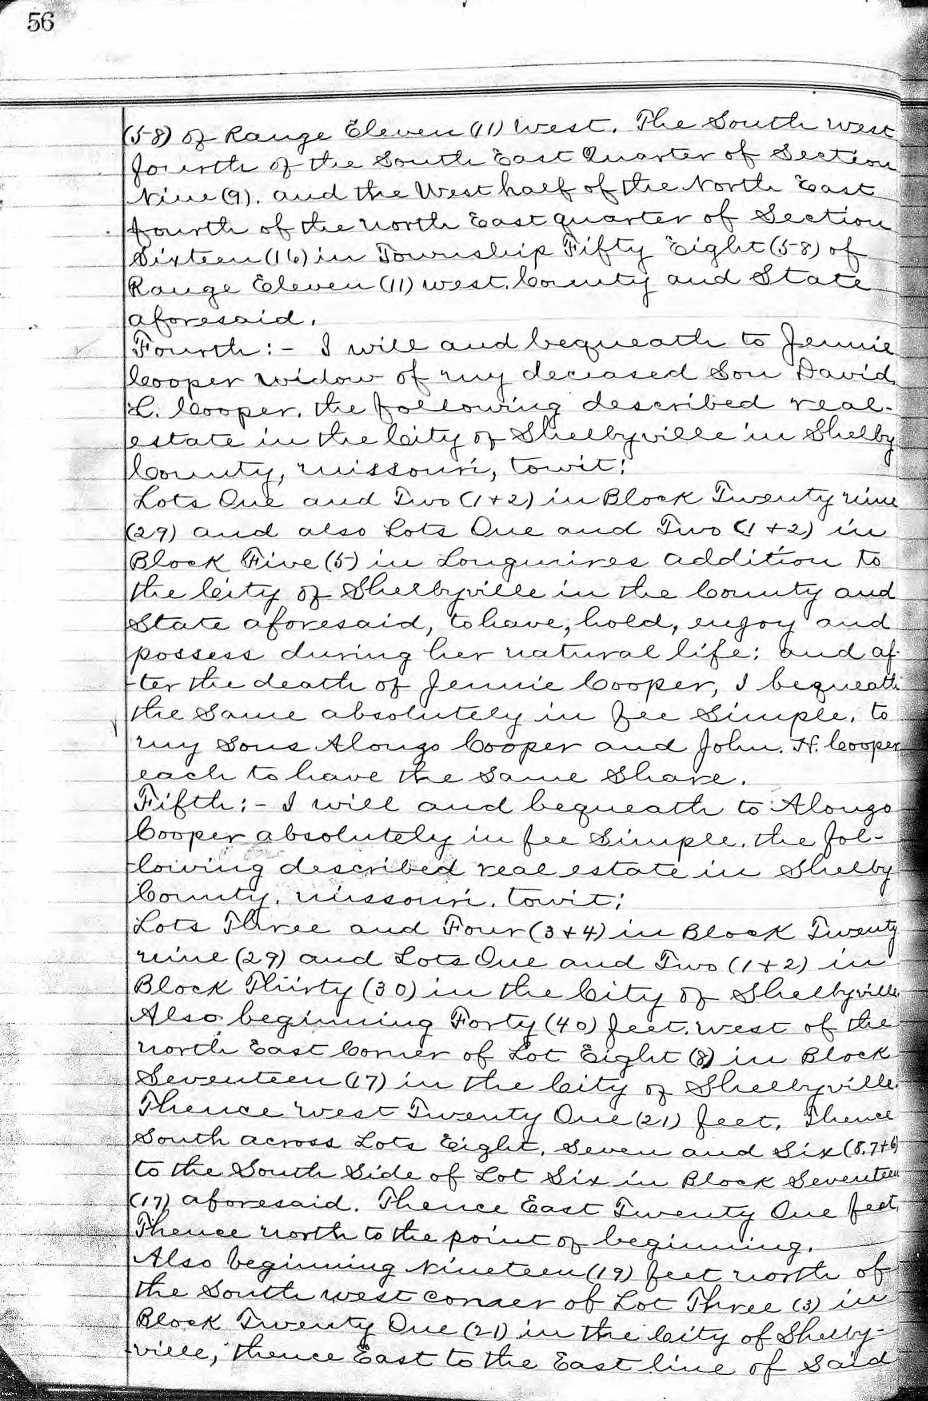 56
(58) of Range Eleven (11) West. The South West
fourth of the South East Quarter of Section
Nine (9). and the West half of the North East
fourth of the north East quarter of Section
Sixteen (16) in Township Fifty Eight (58) of
Range Eleven (11) west. County and State
aforesaid.
Fourth:- I will and bequeath to Jennie
Cooper widow of my deceased Son David
L. Cooper. the following described real-
estate in the City of Shelbyville in Shelby
County, missouri, towit:
Lots One and Two (1+2) in Block Twenty nine
(29) and also Lots One and Two (1+2) in
Block Five (5) in Longmires addition to
the City of Shelbyville in the County and
State aforesaid, to have, hold, enjoy and
possess during her natural life: and af-
ter the death of Jennie Cooper, I bequeath
the Same absolutely in fee Simple. to
my Sons Alongo Cooper and John. H. Cooper
each to have the Same Share.
Fifth:- I will and bequeath to Alongo
Cooper absolutely in fee Simple. the fol-
lowing described real estate in Shelby
County. missouri. towit:
Lots Three and Four (3+4) in Block Twenty
nine (29) and Lots One and Two (1+2) in
Block Thirty (30) in the City of Shelbyville
Also beginning Forty (40) feet. west of the
north East Corner of Lot Eight (8) in Block
Seventeen (17) in the City of Shelbyville.
Thence west Twenty One (21) feet. Thence
South across Lots Eight, Seven and Six (8.7+6)
to the South Side of Lot Six in Block Seventeen
(17) aforesaid. Thence East Twenty One feet
Thence north to the point of beginning.
Also beginning Nineteen (19) feet north of
the South west corner of Lot Three (3) in
Block Twenty One (21) in the City of Shelby-
ville, thence East to the East line of Said